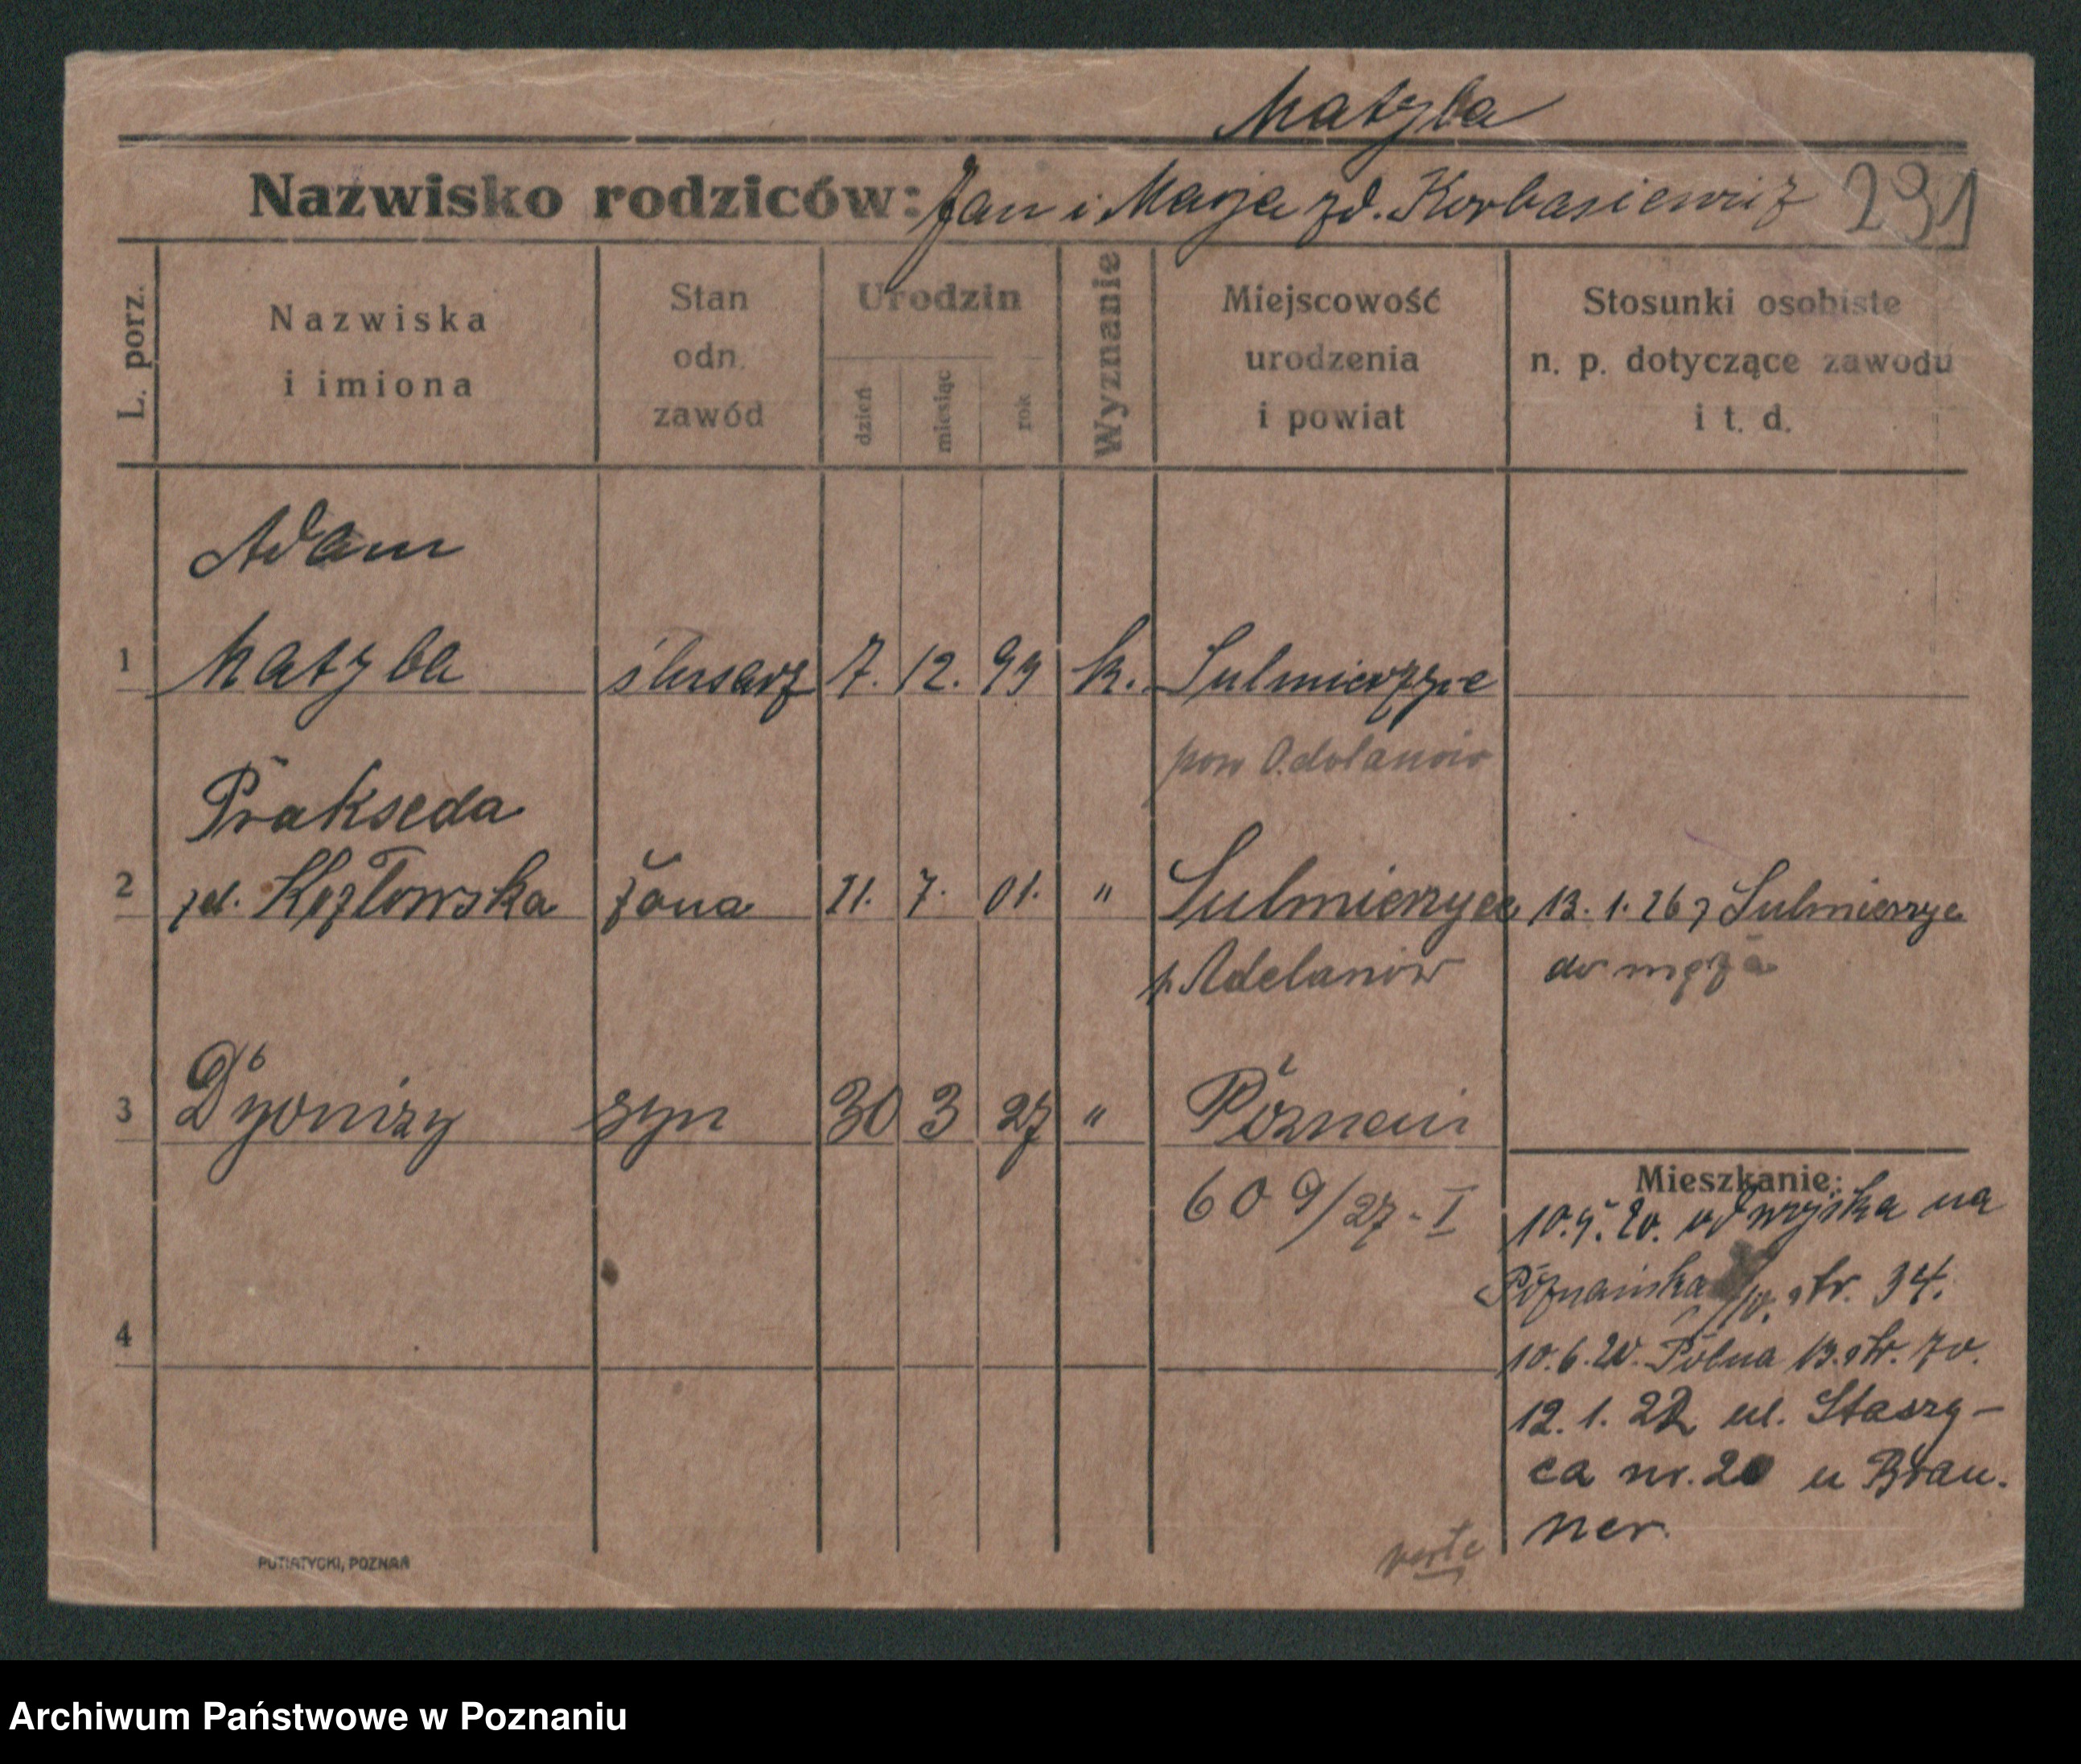 Matyba
Nazwisko rodziców: Jan i Marja zd. Korbasiewicz 291
L. porz.
Nazwiska
i imiona
Stan
odn.
zawód
Urodzin
dzień
miesiąc
rok
Wyznanie
Miejscowość
urodzenia
i powiat
Stosunki osobiste
n. p. dotyczące zawodu
i t. d.
Adam
1 Matyba ślusarz 7. 12. 99 k. Sulmierzyce
pow Odolanów
Prakseda
2 zd. Kozłowska żona 21. 7. 01. " Sulmierzyce 13. 1. 26 z Sulmierzyc
p. Adelanów do męża
3 Dyonizy syn 30 3 27 " Poznań
609/27-I
Mieszkanie:
10.5.20. od wojska na
Poznańska str. 34.
4
10.6.20. Polna 13. str. 70.
12. 1. 22 ul. Staszy-
ca nr. 20 u Brau-
ner.
verte
PUTIATYCKI, POZNAŃ
Archiwum Państwowe w Poznaniu